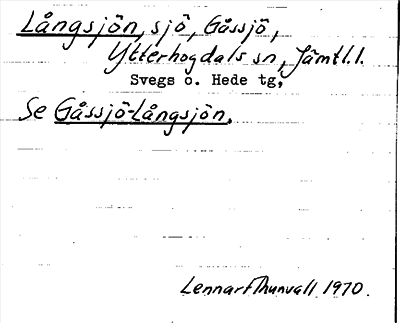 Långsjön, sjö, Gåssjö,
Ytterhogdals sn, Jämtl.l.
Svegs o. Hede tg,
Se Gåssjö-Långsjön.
Lennart Thunvall 1970.